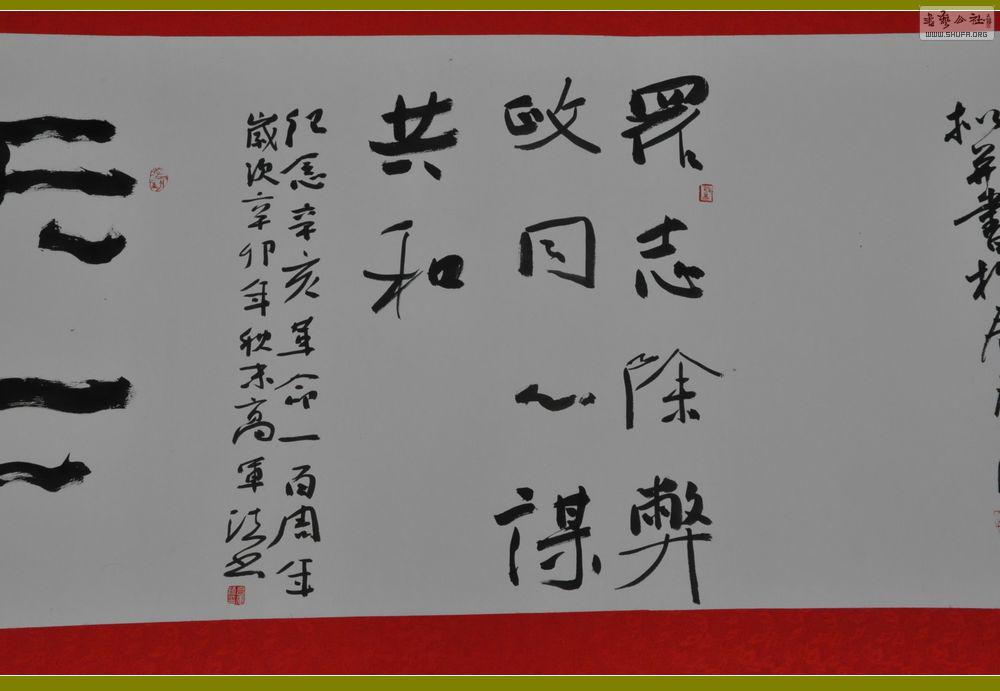 书艺公社
WWW.SHUFA.ORG
并書於
眾志除弊
政同心謀
共和
纪念辛亥革命一百周年
歲次辛卯年秋末高軍书